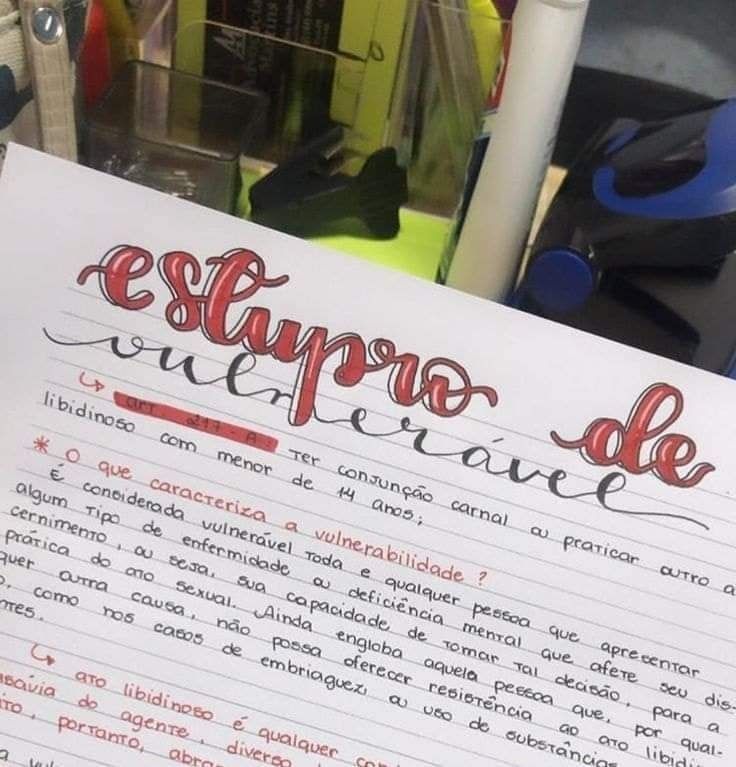 estupro de
vulnerável
↳ art. 217-A: Ter conjunção carnal ou praticar outro a
libidinoso com menor de 14 anos;
* O que caracteriza a vulnerabilidade?
É considerada vulnerável toda e qualquer pessoa que apresentar
algum tipo de enfermidade ou deficiência mental que afete seu dis-
cernimento, ou seja, sua capacidade de tomar tal decisão, para a
prática do ato sexual. Ainda engloba aquela pessoa que, por qual-
quer outra causa, não possa oferecer resistência ao ato libidi
o, como nos casos de embriaguez ou uso de substâncias
ntes.
↳ ato libidinoso é qualquer con
do agente, diverso
ito, portanto, abra